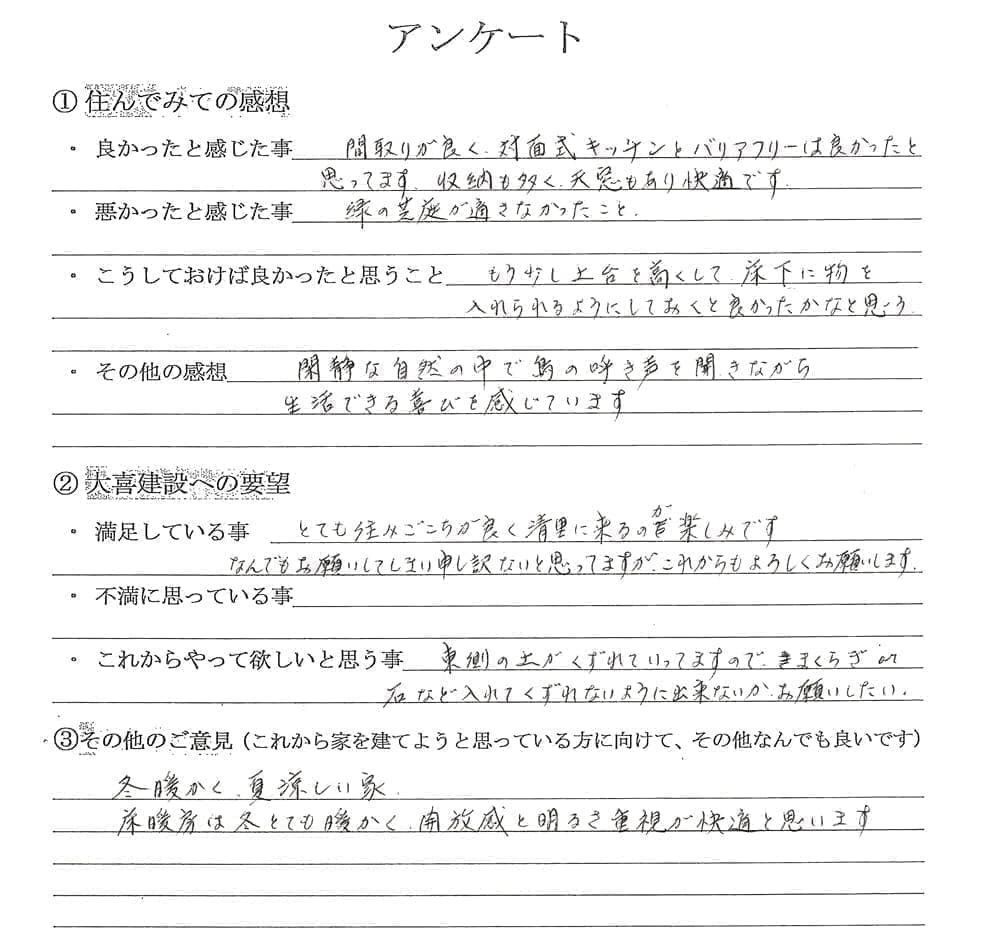 アンケート
① 住んでみての感想
・ 良かったと感じた事 間取りが良く、対面式キッチンとバリアフリーは良かったと
思ってます。収納も多く、天窓もあり快適です。
・ 悪かったと感じた事 緑の芝庭が適さなかったこと。
・ こうしておけば良かったと思うこと もう少し土台を高くして、床下に物を
入れられるようにしておくと良かったかなと思う。
・ その他の感想 閑静な自然の中で鳥の呼き声を聞きながら
生活できる喜びを感じています
② 大喜建設への要望
・ 満足している事 とても住みごこちが良く清里に来るのが楽しみです
なんでもお願いしてしまい申し訳ないと思ってますが、これからもよろしくお願いします。
・ 不満に思っている事
・ これからやって欲しいと思う事 東側の土がくずれていってますので、まくらぎor
石など入れてくずれないように出来ないか、お願いしたい。
③その他のご意見（これから家を建てようと思っている方に向けて、その他なんでも良いです）
冬暖かく、夏涼しい家、
床暖房は冬とても暖かく、開放感と明るさ重視が快適と思います